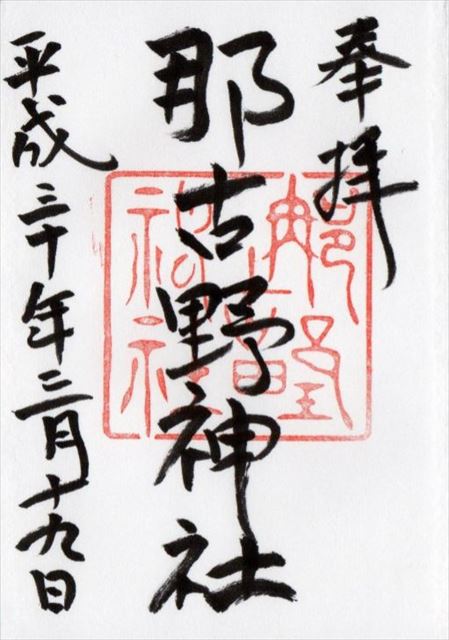 奉拝
那古野神社
平成三十年三月十九日